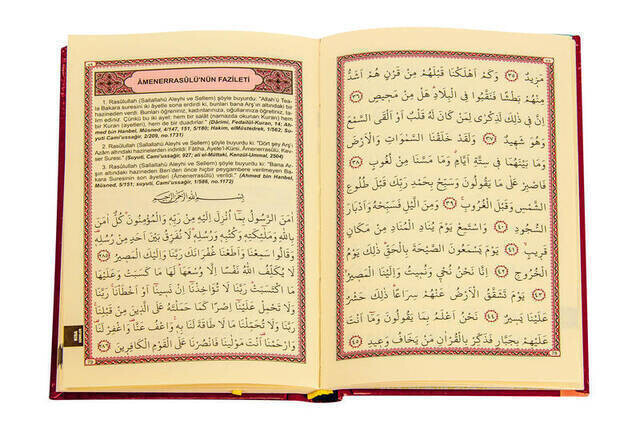 مَزِيدٌ ﴿٣٥﴾ وَكَمْ اَهْلَكْنَا قَبْلَهُمْ مِنْ قَرْنٍ هُمْ اَشَدُّ
مِنْهُمْ بَطْشًا فَنَقَّبُوا فِى الْبِلَادِ هَلْ مِنْ مَحِيصٍ ﴿٣٦﴾
اِنَّ فِى ذٰلِكَ لَذِكْرٰى لِمَنْ كَانَ لَهُ قَلْبٌ اَوْ اَلْقَى السَّمْعَ
وَهُوَ شَهِيدٌ ﴿٣٧﴾ وَلَقَدْ خَلَقْنَا السَّمٰوَاتِ وَالْاَرْضَ
وَمَا بَيْنَهُمَا فِى سِتَّةِ اَيَّامٍ وَمَا مَسَّنَا مِنْ لُغُوبٍ ﴿٣٨﴾
فَاصْبِرْ عَلٰى مَا يَقُولُونَ وَسَبِّحْ بِحَمْدِ رَبِّكَ قَبْلَ طُلُوعِ
الشَّمْسِ وَقَبْلَ الْغُرُوبِ ﴿٣٩﴾ وَمِنَ الَّيْلِ فَسَبِّحْهُ وَاَدْبَارَ
السُّجُودِ ﴿٤٠﴾ وَاسْتَمِعْ يَوْمَ يُنَادِ الْمُنَادِ مِنْ مَكَانٍ
قَرِيبٍ ﴿٤١﴾ يَوْمَ يَسْمَعُونَ الصَّيْحَةَ بِالْحَقِّ ذٰلِكَ يَوْمُ
الْخُرُوجِ ﴿٤٢﴾ اِنَّا نَحْنُ نُحْيٖ وَنُمِيتُ وَاِلَيْنَا الْمَصِيرُ
﴿٤٣﴾ يَوْمَ تَشَقَّقُ الْاَرْضُ عَنْهُمْ سِرَاعًا ذٰلِكَ حَشْرٌ
عَلَيْنَا يَسِيرٌ ﴿٤٤﴾ نَحْنُ اَعْلَمُ بِمَا يَقُولُونَ وَمَا اَنْتَ
عَلَيْهِمْ بِجَبَّارٍ فَذَكِّرْ بِالْقُرْاٰنِ مَنْ يَخَافُ وَعِيدِ ﴿٤٥﴾
ÂMENERRASÛLÜ'NÜN FAZİLETİ
1. Rasûlullah (Sallallahü Aleyhi ve Sellem) şöyle buyurdu: "Allah'ü Tea-
la Bakara suresini iki âyetle sona erdirdi ki, bunları bana Arş'ı altındaki bir
hazineden verdi. Bunları öğreniniz, kadınlarınıza, oğullarınıza öğretiniz, ta-
lim ediniz. Çünkü bu iki âyet; hem bir salât (namazda okunan Kuran) hem
bir Kuran (ayetleri), hem de bir duadırlar." (Dârimî, Fedailül-Kuran, 14; Ah-
med bin Hanbel, Müsned, 4/147, 151, 5/180; Hakim, elMüstedrek, 1/562; Su-
yuti Cami'ussağir, 2/209, no.1731)
2. Rasûlullah (Sallallahü Aleyhi ve Sellem) şöyle buyurdu ki: "Dört şey Arş'ı
Azâm altındaki hazinelerden indirildi: Fâtiha, Ayete'l-Kürsi, Âmenerrasûlü, Kev-
ser Suresi." (Suyuti, Cami'ussağir, 927; ali el-Müttaki, Kenzül-Ummal, 2504)
3. Rasûlullah (Sallallahü Aleyhi ve Sellem) şöyle buyurdu ki: "Bana Ar-
ş'ın altındaki hazineden Ben'den önce hiçbir peygambere verilmeyen Ba-
kara Suresinin son âyetleri (Âmenerrasûlü) verildi." (Ahmed bin Hanbel,
Müsned, 5/151; suyuti, Cami'ussağir, 1/586, no.1172)
بِسْمِ اللهِ الرَّحْمٰنِ الرَّحِيمِ
اٰمَنَ الرَّسُولُ بِمَا اُنْزِلَ اِلَيْهِ مِنْ رَبِّهٖ وَالْمُؤْمِنُونَ كُلٌّ اٰمَنَ
بِاللهِ وَمَلٰئِكَتِهٖ وَكُتُبِهٖ وَرُسُلِهٖ لَا نُفَرِّقُ بَيْنَ اَحَدٍ مِنْ رُسُلِهٖ
وَقَالُوا سَمِعْنَا وَاَطَعْنَا غُفْرَانَكَ رَبَّنَا وَاِلَيْكَ الْمَصِيرُ ﴿٢٨٥﴾
لَا يُكَلِّفُ اللهُ نَفْسًا اِلَّا وُسْعَهَا لَهَا مَا كَسَبَتْ وَعَلَيْهَا
مَا اكْتَسَبَتْ رَبَّنَا لَا تُؤَاخِذْنَا اِنْ نَسِينَا اَوْ اَخْطَاْنَا رَبَّنَا
وَلَا تَحْمِلْ عَلَيْنَا اِصْرًا كَمَا حَمَلْتَهُ عَلَى الَّذِينَ مِنْ قَبْلِنَا
رَبَّنَا وَلَا تُحَمِّلْنَا مَا لَا طَاقَةَ لَنَا بِهٖ وَاعْفُ عَنَّا وَاغْفِرْ لَنَا
وَارْحَمْنَا اَنْتَ مَوْلٰينَا فَانْصُرْنَا عَلَى الْقَوْمِ الْكَافِرِينَ ﴿٢٨٦﴾